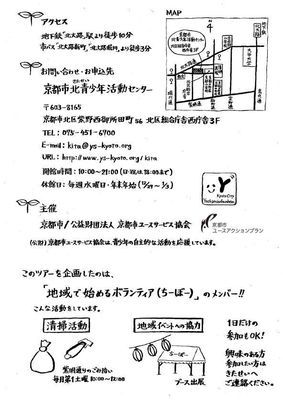 アクセス
MAP
地下鉄"北大路"駅より徒歩10分
市バス"北大路新町"、"北大路堀川"より徒歩3分
お問い合わせ・お申込先
京都市北青少年活動センター
〒603-8165
京都市北区紫野西御所田町56 北区総合庁舎西庁舎3F
TEL: 075-451-6700
E-mail: kita@ys-kyoto.org
URL: http://www.ys-kyoto.org/kita
開館時間: 10:00~21:00
休館日: 毎週水曜日・年末年始(12/29~1/3)
主催
京都市/公益財団法人 京都市ユースサービス協会
京都市
ユースアクションプラン
(公財)京都市ユースサービス協会は、青少年の自主的な活動を応援しています。
このツアーを企画したのは、
「地域で始めるボランティア(ちーぼー)」のメンバー!!
こんな活動をしています。
清掃活動
紫明通りのごみ拾い
毎月第1土曜 10:00~12:00
地域イベントへの協力
ちーぼー
ブース出展
1日だけの
参加もOK!
興味のある方
参加したい方は
きたせいへ
ご連絡ください。